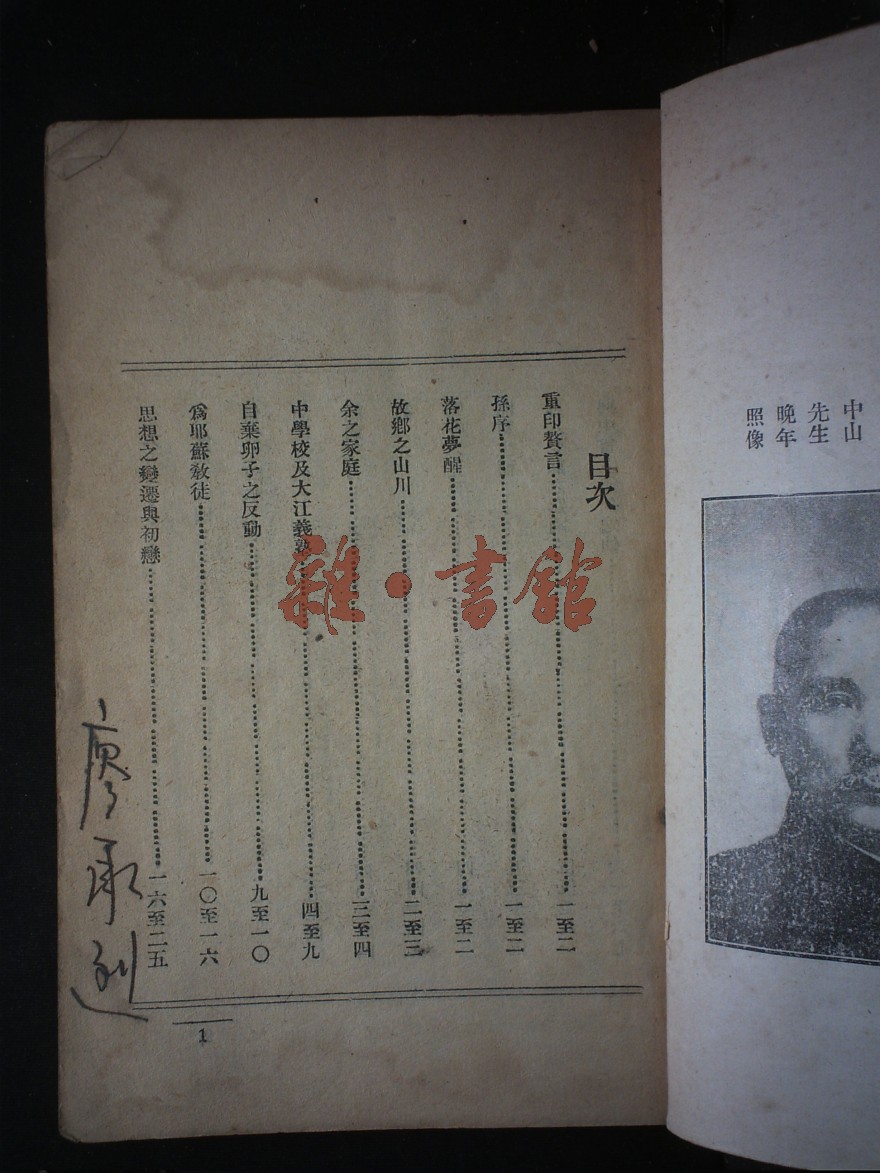 中山
先生
晚年
照像
目次
重印贅言一至二
孫序一至二
落花夢醒一至二
故鄉之山川二至三
余之家庭三至四
中學校及大江義塾四至九
自棄卵子之反動九至一〇
爲耶蘇敎徒一〇至一六
思想之變遷與初戀一六至二五
1
雜·書館
廖承